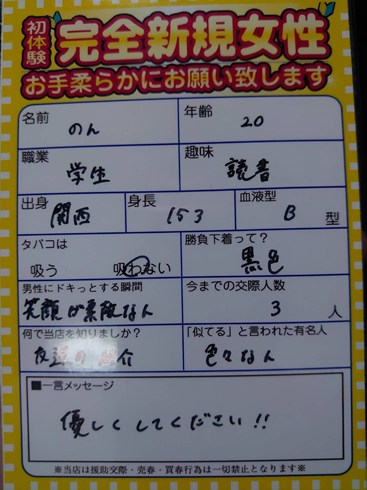 初体験 完全新規女性
お手柔らかにお願い致します
名前 のん 年齢 20
職業 学生 趣味 読書
出身 関西 身長 153 血液型 B 型
タバコは 吸う 吸わない 勝負下着って? 黒色
男性にドキっとする瞬間 笑顔が素敵な人 今までの交際人数 3 人
何で当店を知りましか? 友達の紹介 「似てる」と言われた有名人 色々な人
■一言メッセージ
優しくしてください!!
※当店は援助交際・売春・買春行為は一切禁止となります※